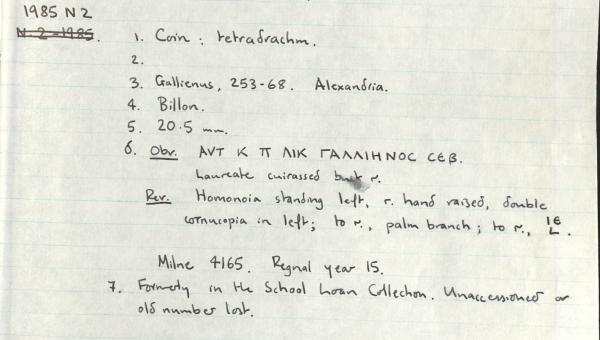 1985 N 2
N. 2 - 1985.
1. Coin : tetradrachm.
2.
3. Gallienus, 253-68. Alexandria.
4. Billon.
5. 20.5 mm.
6. Obv. ΑVΤ Κ Π ΛΙΚ ΓΑΛΛΙΗΝΟС СЄΒ.
Laureate cuirassed bust r.
Rev. Homonoia standing left, r. hand raised, double
cornucopia in left; to r., palm branch; to r., ΙЄ
L.
Milne 4165. Regnal year 15.
7. Formerly in the School Loan Collection. Unaccessioned or
old number lost.